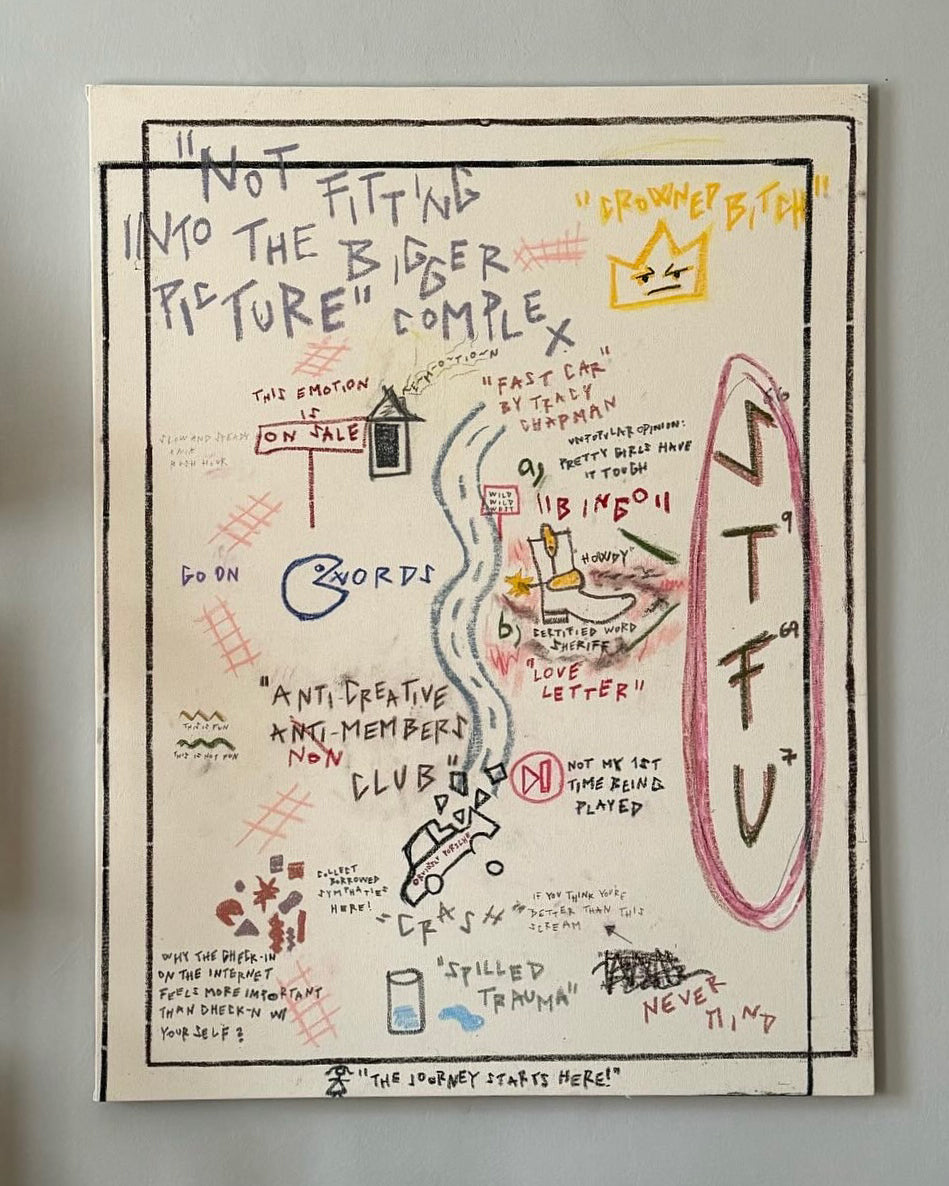 "NOT FITTING
INTO THE BIGGER
PICTURE" COMPLEX
"CROWNED BITCH"
THIS EMOTION
IS
ON SALE
"FAST CAR"
BY TRACY
CHAPMAN
SLOW AND STEADY
RUSH HOUR
UNPOPULAR OPINION:
PRETTY GIRLS HAVE
IT TOUGH
a)
WILD
WILD
WEST
"BINGO"
"HOWDY"
GO ON
WORDS
b)
CERTIFIED WORD
SHERIFF
"LOVE
LETTER"
"ANTI-CREATIVE
ANTI-MEMBERS
NON
CLUB"
THIS IS FUN
THIS IS NOT FUN
NOT MY 1ST
TIME BEING
PLAYED
S
T 9
F 69
U 7
COLLECT
BORROWED
SYMPHATIES
HERE!
"CRASH"
IF YOU THINK YOU'RE
BETTER THAN THIS
SCREAM
WHY THE CHECK-IN
ON THE INTERNET
FEELS MORE IMPORTANT
THAN CHECK-N W/
YOUR SELF?
"SPILLED
TRAUMA"
NEVER
MIND
"THE JOURNEY STARTS HERE!"